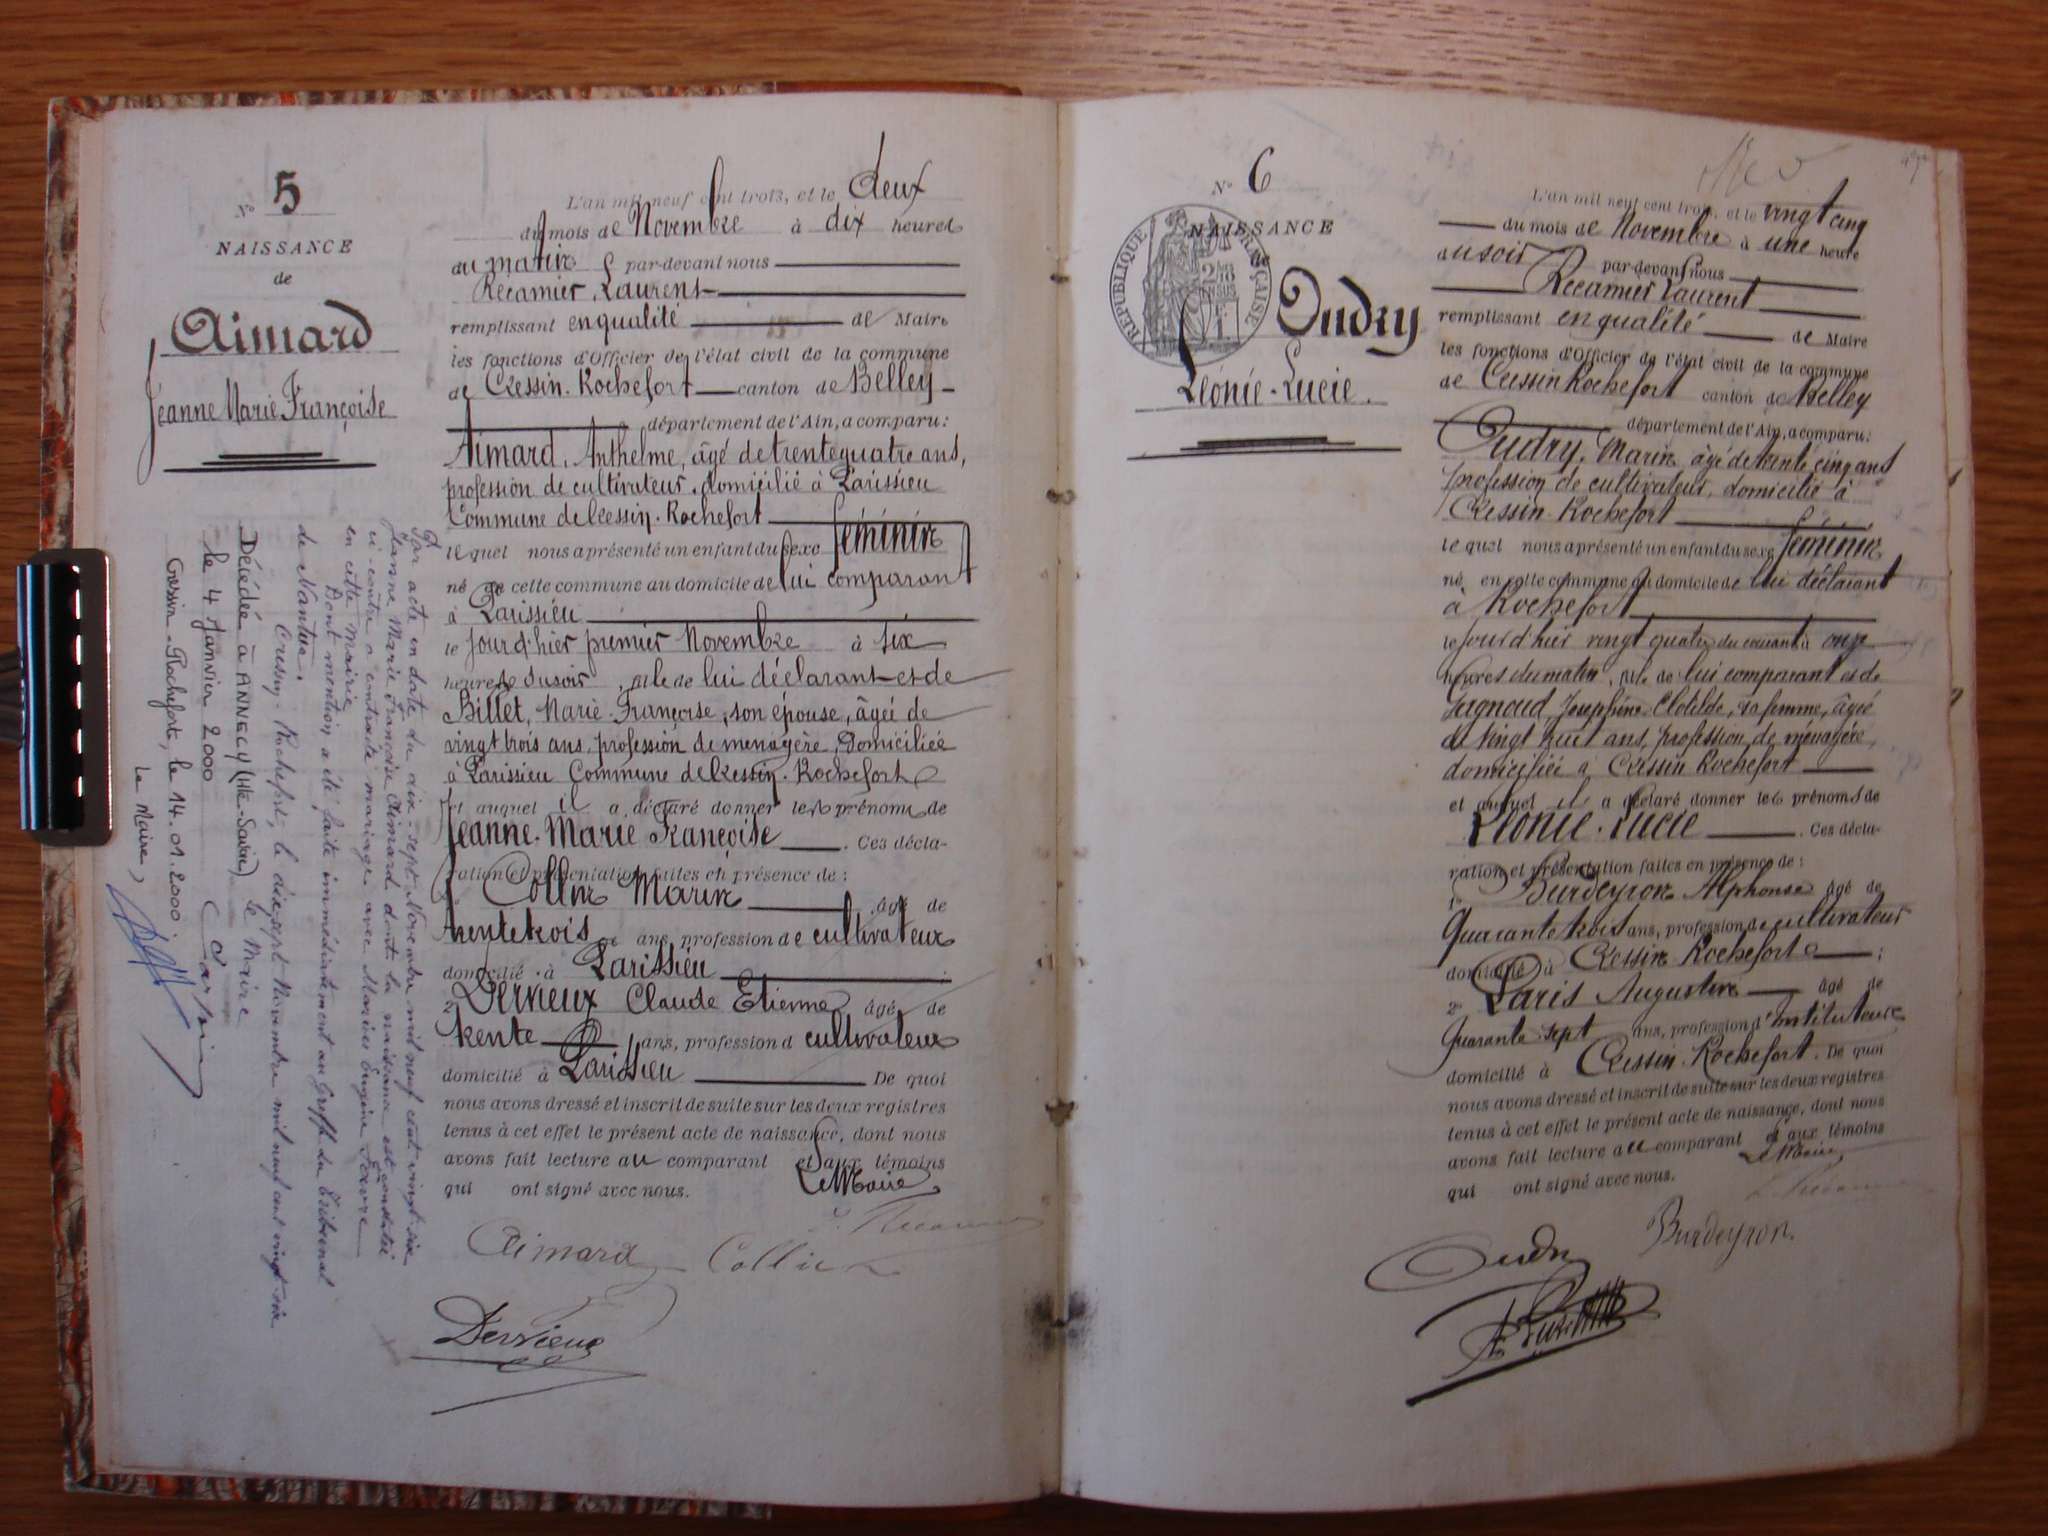 N° 5
NAISSANCE
de
Aimard
Jeanne Marie Françoise
Par acte en date du dix-sept Novembre mil neuf cent vingt-six
Jeanne Marie Françoise Aimard dont la naissance est constatée
ci-contre a contracté mariage avec Marius Eugène Favre
en cette mairie
Dont mention a été faite immédiatement au Greffe du Tribunal
de Nantua.
Cressin-Rochefort, le dix-sept Novembre mil neuf cent vingt-six
Le Maire
Décédée à ANNECY (Hte-Savoie)
le 4 Janvier 2000
Cressin-Rochefort, le 14.01.2000
Le Maire,
L'an mil neuf cent trois, et le deux
du mois de Novembre à dix heures
du matin par-devant nous
Récamier, Laurent
remplissant en qualité de Maire
les fonctions d'Officier de l'état civil de la commune
de Cressin-Rochefort canton de Belley
département de l'Ain, a comparu:
Aimard, Anthelme, âgé de trente quatre ans,
profession de cultivateur, domicilié à Parissieu
Commune de Cressin-Rochefort
lequel nous a présenté un enfant du sexe féminin
né en cette commune au domicile de lui comparant
à Parissieu
le jour d'hier premier Novembre à six
heures du soir, de lui déclarant et de
Billet, Marie-Françoise, son épouse, âgée de
vingt trois ans, profession de ménagère, domiciliée
à Parissieu Commune de Cressin-Rochefort
et auquel il a déclaré donner les prénoms de
Jeanne-Marie Françoise. Ces décla-
ration et présentation faites en présence de:
1° Collin Marin âgé de
trente trois ans, profession de cultivateur
domicilié à Parissieu
2° Dervieux Claude Etienne âgé de
trente ans, profession d cultivateur
domicilié à Parissieu De quoi
nous avons dressé et inscrit de suite sur les deux registres
tenus à cet effet le présent acte de naissance, dont nous
avons fait lecture au comparant et aux témoins
qui ont signé avec nous. Le Maire
Aimard Collin
Dervieux
N° 6
NAISSANCE
de
RÉPUBLIQUE FRANÇAISE
Oudry
Léonie-Lucie.
L'an mil neuf cent trois, et le vingt cinq
du mois de Novembre à une heure
du soir par-devant nous
Récamier Laurent
remplissant en qualité de Maire
les fonctions d'Officier de l'état civil de la commune
de Cressin Rochefort canton de Belley
département de l'Ain, a comparu:
Oudry, Marin âgé de trente cinq ans
profession de cultivateur, domicilié à
Cressin-Rochefort
lequel nous a présenté un enfant du sexe féminin
né en cette commune au domicile de lui déclarant
à Rochefort
le jour d'hier vingt quatre du courant à onze
heures du matin, de lui comparant et de
Joséphine-Clotilde, sa femme, âgée
de vingt huit ans, profession de ménagère,
domiciliée à Cressin Rochefort
et auquel il a déclaré donner les prénoms de
Léonie-Lucie. Ces décla-
ration et présentation faites en présence de:
1° Burdeyron Alphonse âgé de
Quarante trois ans, profession de cultivateur
domicilié à Cressin-Rochefort;
2° Paris Augustin âgé de
Quarante sept ans, profession d'instituteur
domicilié à Cressin-Rochefort. De quoi
nous avons dressé et inscrit de suite sur les deux registres
tenus à cet effet le présent acte de naissance, dont nous
avons fait lecture au comparant et aux témoins
qui ont signé avec nous. Le Maire
Oudry Burdeyron.